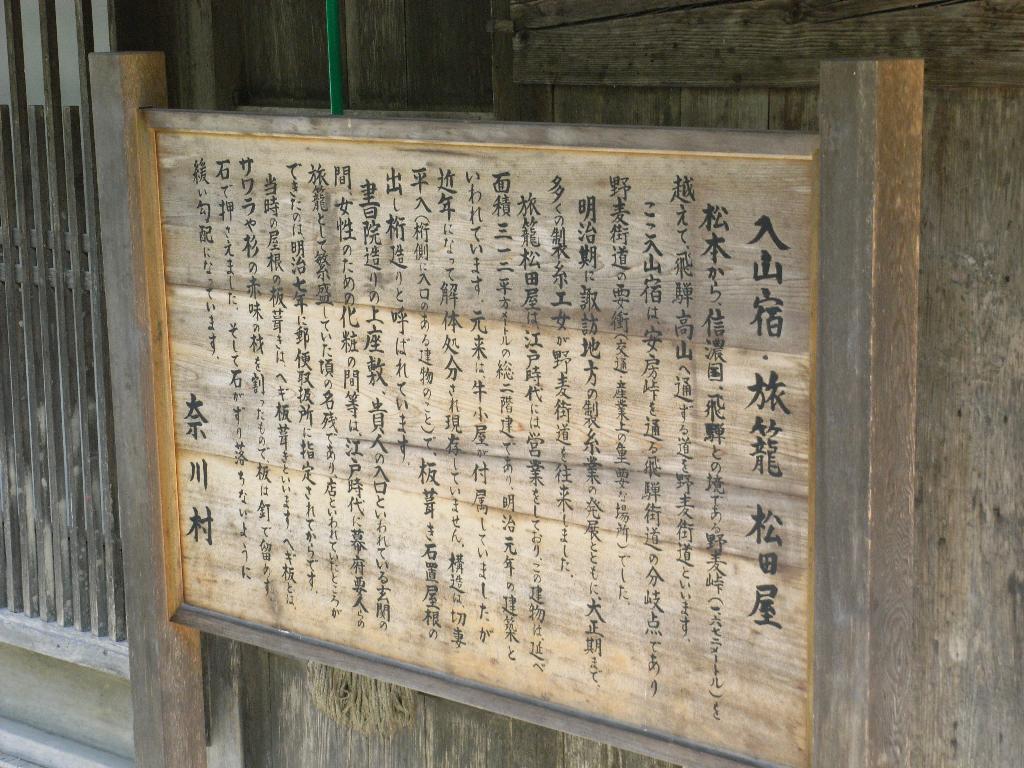 入山宿・旅籠 松田屋
松本から、信濃国一飛騨との境である野麦峠(一六七二メートル)を
越えて、飛騨高山へ通ずる道を野麦街道といいます。
ここ入山宿は、安房峠を通る飛騨街道の分岐点であり
野麦街道の要衝(交通、産業上の重要な場所)でした。
明治期に諏訪地方の製糸業の発展とともに、大正期まで、
多くの製糸工女が野麦街道を往来しました。
旅籠松田屋は、江戸時代には営業をしており、この建物は延べ
面積三一二平方メートルの総二階建であり、明治元年の建築と
いわれています。元来は、牛小屋が付属していましたが
近年になって解体処分され現存していません。構造は、切妻
平入(桁側に入口のある建物のこと)で板葺き石置屋根の
出し桁造りと呼ばれています。
書院造りの上座敷、貴人の入口といわれている玄関の
間、女性のための化粧の間等は、江戸時代に幕府要人の
旅籠として繁盛していた頃の名残であり店といわれていたところが
できたのは、明治七年に郵便取扱所に指定されてからです。
当時の屋根の板葺きは、ヘギ板葺きといいます。ヘギ板とは、
サワラや杉の赤味の材を割ったもので板は釘で留めず、
石で押さえました。そして石がずり落ちないように
緩い勾配になっています。
奈川村